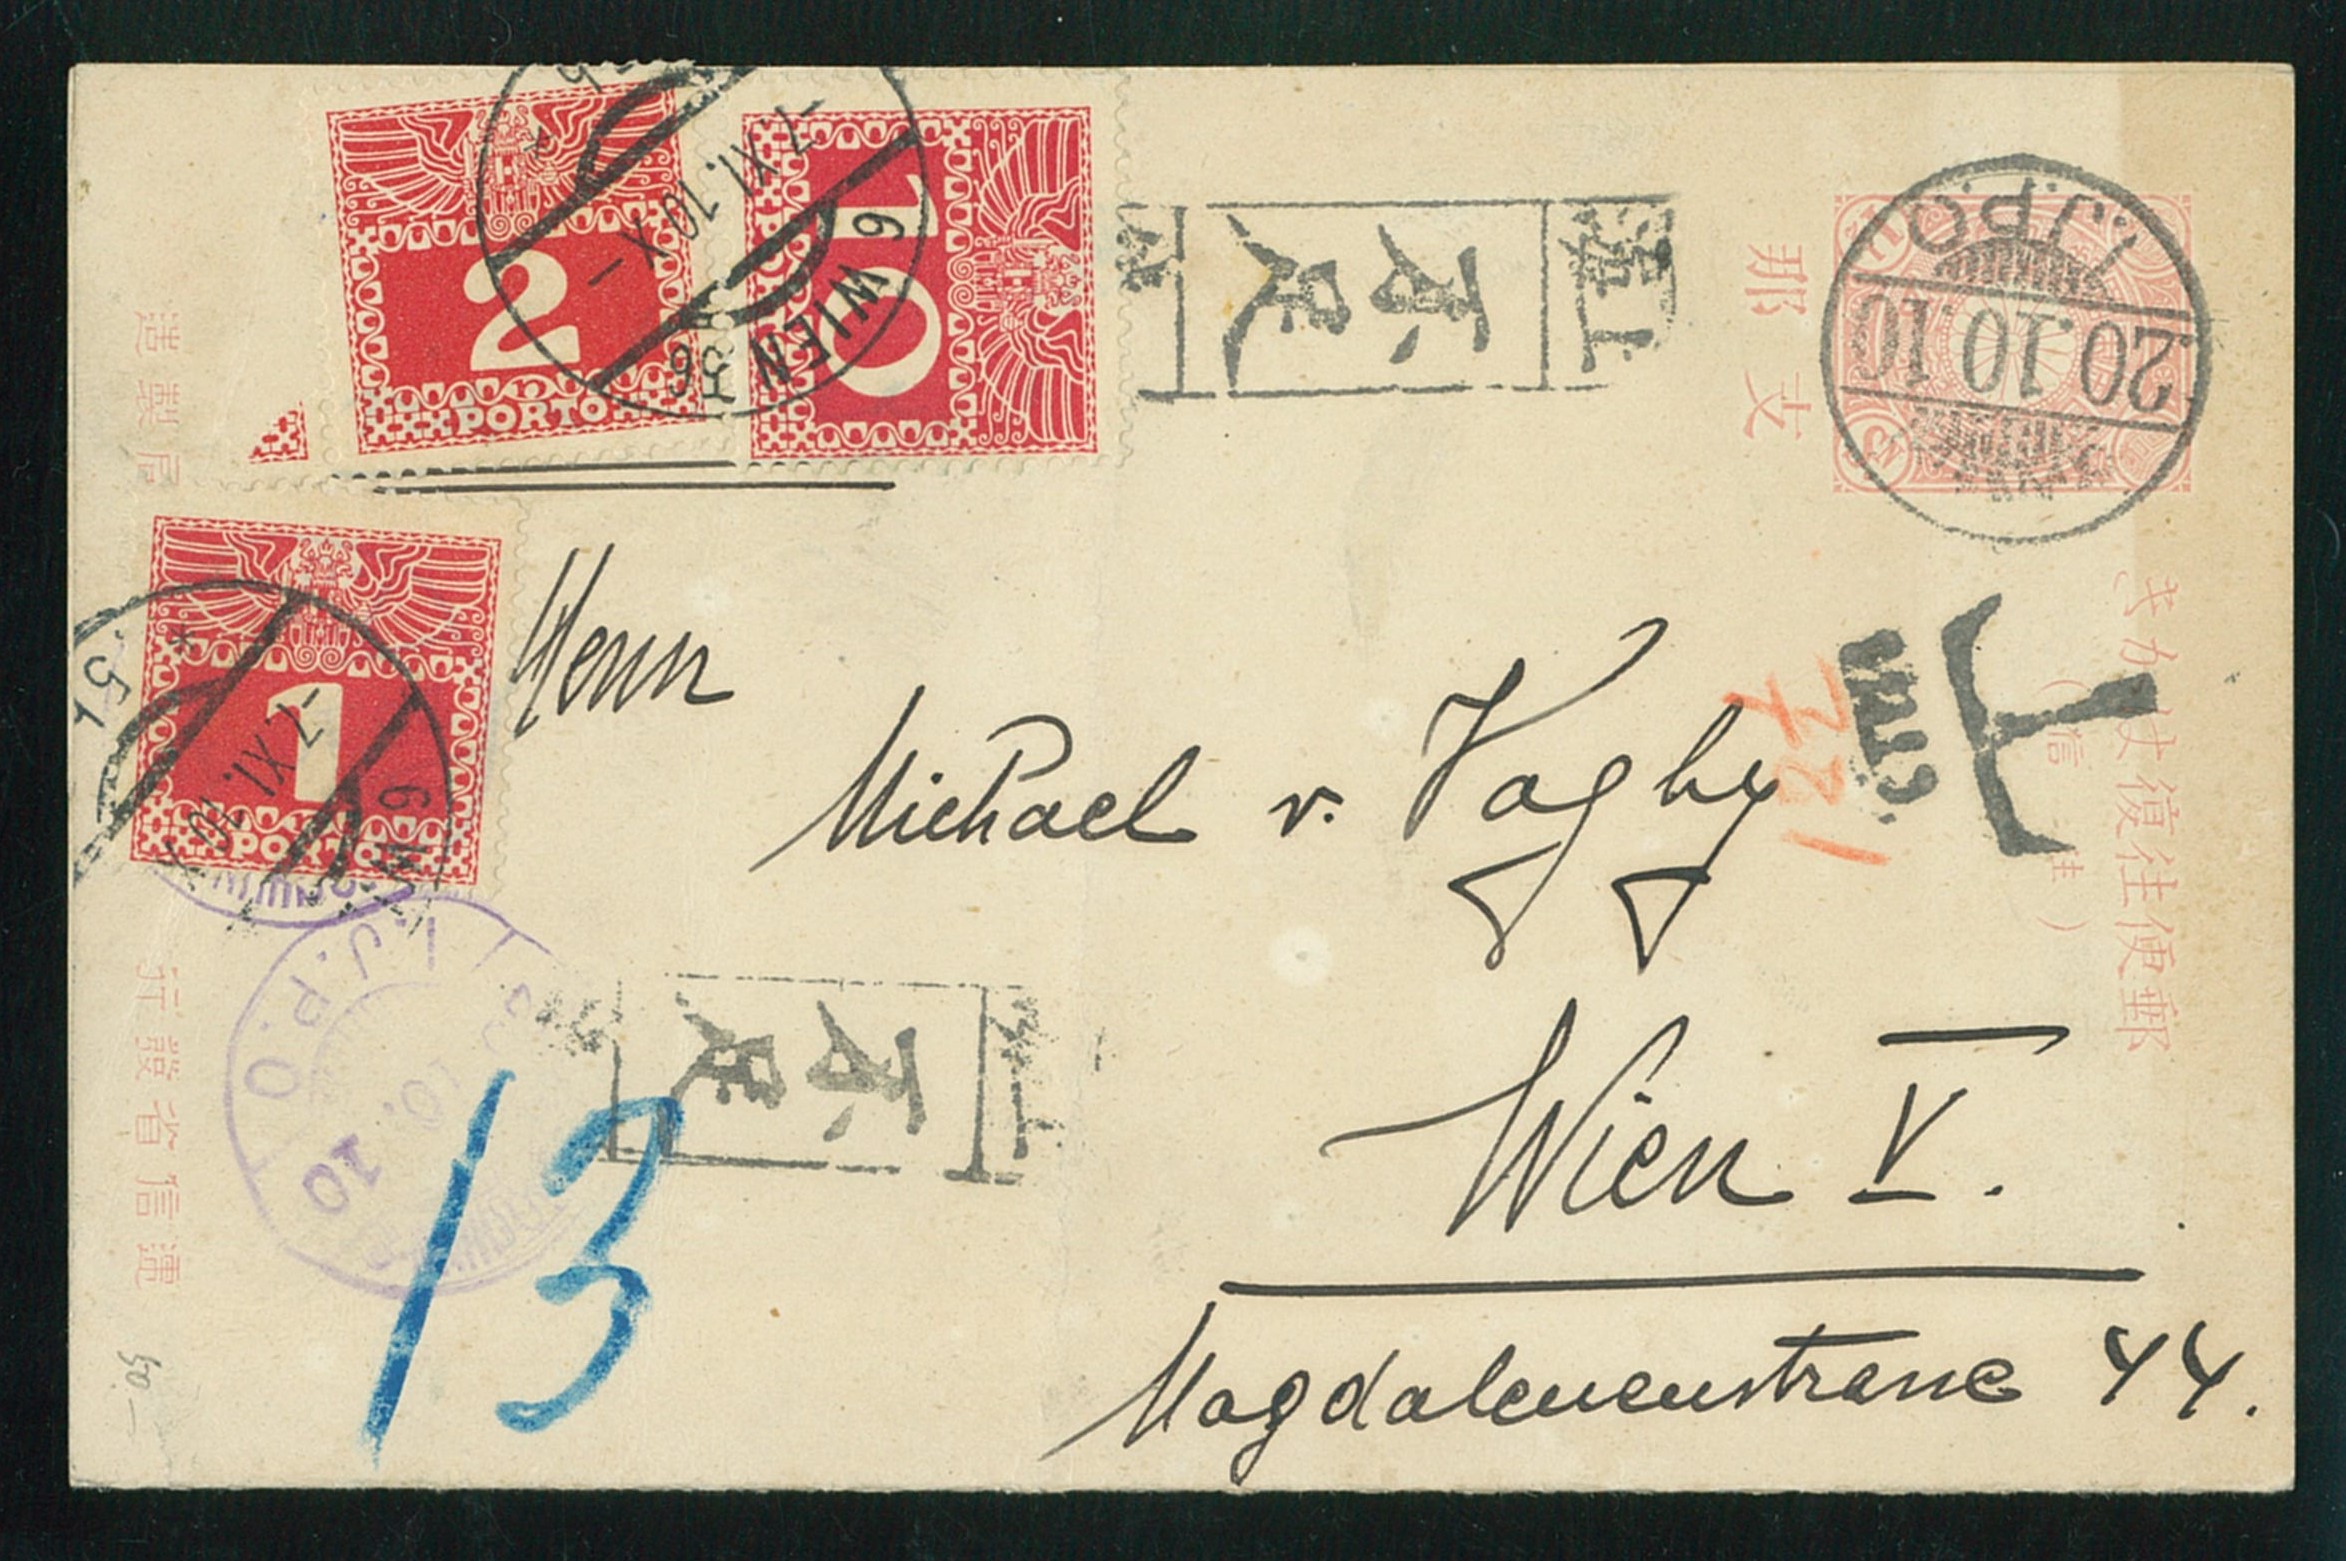 2
PORTO
10
WIEN 56
6
-7.XI.10 X-
I.J.P.O.
20.10.10
支那
1
PORTO
-7.XI.10 X
I.J.P.O.
10
不足
不足
T
Herrn
Michael v. Vaghy
Wien V.
Magdalenenstrasse 44.
13
郵便往復はがき
(往信)
逓信省發行
局製造
50-